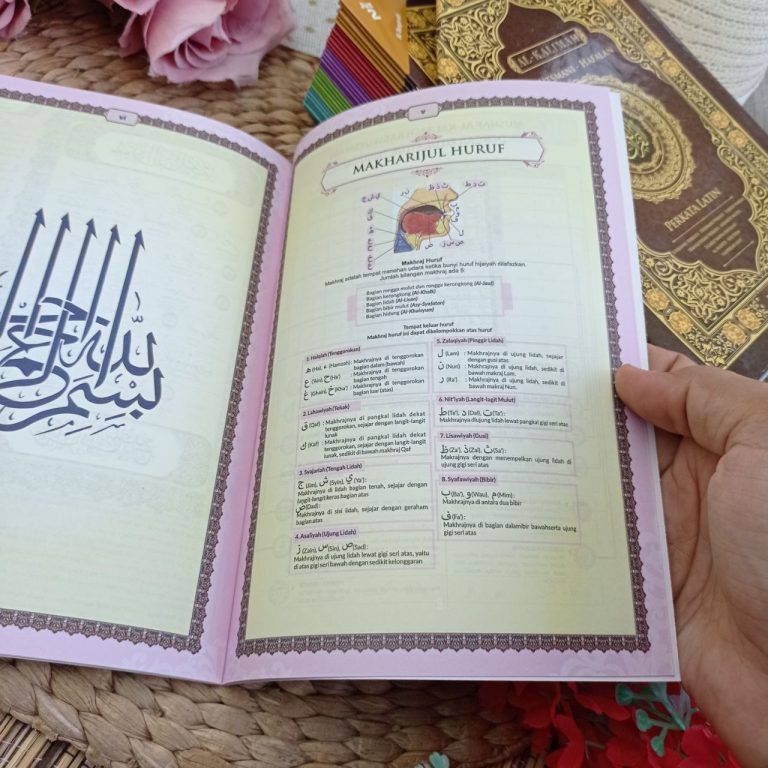 بسم الله الرحمن الرحيم
MAKHARIJUL HURUF
Makhraj Huruf
Makhraj adalah tempat menahan udara ketika bunyi huruf hijaiyah dilafazkan.
Jumlah bilangan makhraj ada 5:
Bagian rongga mulut dan rongga kerongkong (Al-Jauf)
Bagian kerongkong (Al-Khalk)
Bagian lidah (Al-Lisan)
Bagian bibir mulut (Asy-Syafatan)
Bagian hidung (Al-Khaisyum)
Tempat keluar huruf
Makhraj huruf ini dapat dikelompokkan atas huruf
1. Halqiah (Tenggorokan)
ھ (Ha), ء (Hamzah): Makhrajnya di tenggorokan
bagian dalam (bawah)
ع (Ain) ح (Ha') : Makhrajnya di tenggorokan
bagian tengah
غ (Ghain), خ (Kha') : Makhrajnya di tenggorokan
bagian luar (atas)
2. Lahawiyah (Tekak)
ق (Qaf) : Makhrajnya di pangkal lidah dekat
tenggorokan, sejajar dengan langit-langit
lunak
ك (Kaf) : Makhrajnya di pangkal lidah dekat
tenggorokan, sejajar dengan langit-langit
lunak, sedikit di bawah makhraj Qaf
3. Syajariah (Tengah Lidah)
ج (Jim), ش (Syin), ي (Ya'):
Makhrajnya di lidah bagian tenah, sejajar dengan
langit-langit keras bagian atas
ض (Dad):
Makhrajnya di sisi lidah, sejajar dengan geraham
bagian atas
4. Asaliyah (Ujung Lidah)
ز (Zain), س (Sin), ص (Sad):
Makhrajnya di ujung lidah lewat gigi seri atas, yaitu
di atas gigi seri bawah dengan sedikit kelonggaran
5. Zalaqiyah (Pinggir Lidah)
ل (Lam) : Makhrajnya di ujung lidah, sejajar
dengan gusi atas
ن (Nun) : Makhrajnya di ujung lidah, sedikit di
bawah makraj Lam.
ر (Ra') : Makhrajnya di ujung lidah, sedikit di
bawah makraj Nun.
6. Nit'iyah (Langit-lagit Mulut)
ط (Ta'), د (Dal), ت (Ta'):
Makhrajnya diujung lidah lewat pangkal gigi seri atas
7. Lisawiyah (Gusi)
ظ (Za'), ذ (Za), ث (Sa'):
Makrajnya dengan menempelkan ujung lidah di
ujung gigi seri atas
8. Syafawiyah (Bibir)
ب (Ba'), و (Wau), م (Mim):
Makhrajnya di antara dua bibir
ف (Fa'):
Makhrajnya di bagian dalambibir bawahserta ujung
gigi seri atas
AL-KALIMAH
HAFALAN
PERKATA LATIN